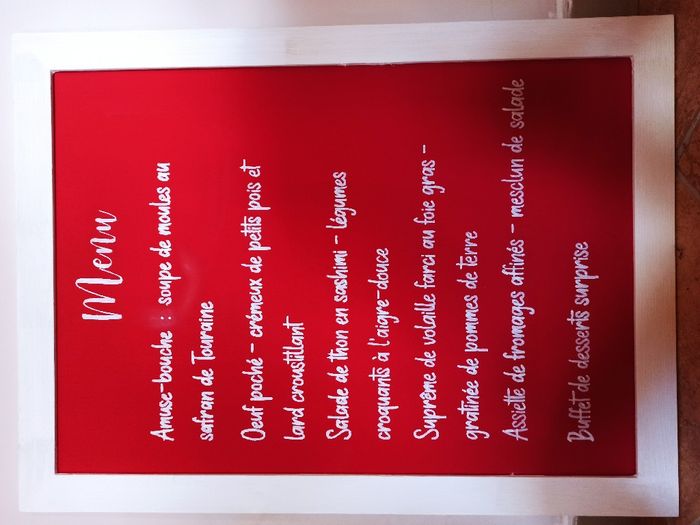 Menu
Amuse-bouche : soupe de moules au
safran de Touraine
Oeuf poché - crémeux de petits pois et
lard croustillant
Salade de thon en sashimi - légumes
croquants à l'aigre-douce
Suprême de volaille farci au foie gras -
gratinée de pommes de terre
Assiette de fromages affinés - mesclun de salade
Buffet de desserts surprise